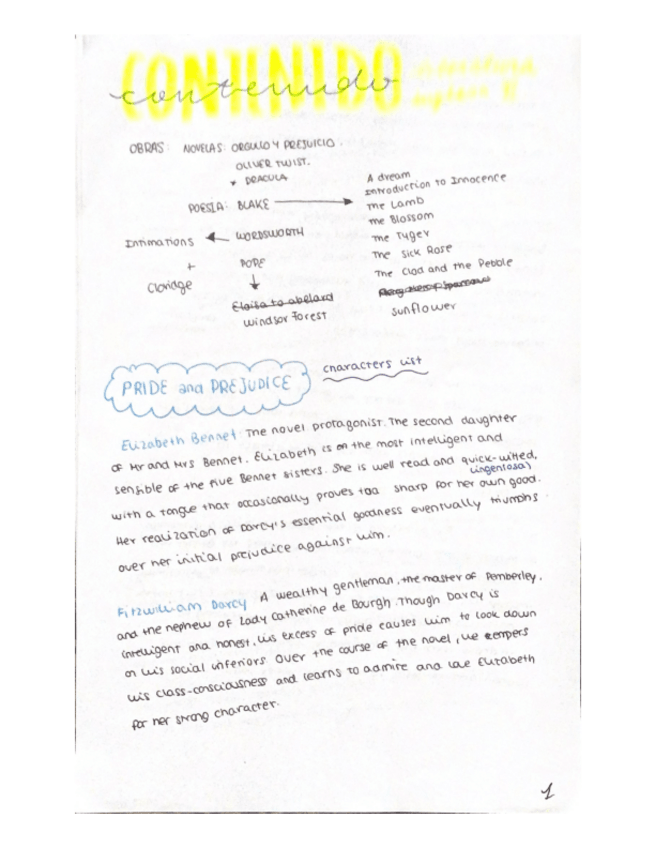 CONTENIDO
contenido
OBRAS: NOVELAS: ORGULLO Y PREJUICIO.
OLIVER TWIST.
DRACULA
POESÍA: BLAKE
A dream
Introduction to Innocence
The Lamb
The Blossom
The Tyger
The Sick Rose
The Clod and the Pebble
sunflower
Intimations
WORDSWORTH
+
Cloridge
POPE
Eloisa to abelard
Windsor Forest
PRIDE and PREJUDICE
characters list
Elizabeth Bennet The novel protagonist. The second daughter
of Mr and Mrs Bennet. Elizabeth is on the most intelligent and
sensible of the five Bennet sisters. She is well read and quick-witted,
(ingeniosa)
with a tongue that occasionally proves too sharp for her own good.
Her realization of Darcy's essential goodness eventually triumphs
over her initial prejudice against him.
Fitzwilliam Darcy A wealthy gentleman, the master of Pemberley,
and the nephew of Lady Catherine de Bourgh. Though Darcy is
intelligent and honest, his excess of pride causes him to look down
on his social inferiors. Over the course of the novel, he tempers
his class-consciousness and learns to admire and love Elizabeth
for her strong character.
1